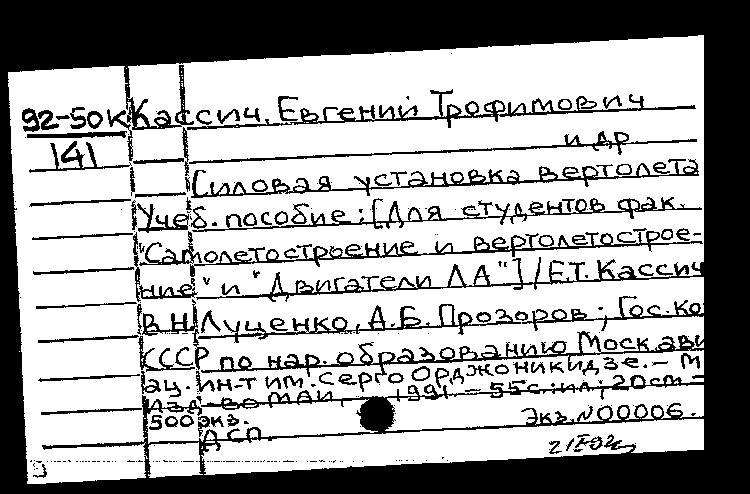 92-50к Кассич, Евгений Трофимович
141 и др
Силовая установка вертолета
Учеб. пособие: [Для студентов фак.
"Самолетостроение и вертолетострое-
ние" и "Двигатели ЛА"] / Е.Т. Кассич
В.Н. Луценко, А.Б. Прозоров; Гос. ко
СССР по нар. образованию Моск. ави
ац. ин-т им. Серго Орджоникидзе. - М
Изд-во МАИ, 1991. - 55 с.: ил; 20 см. -
500 экз. Экз. N00006.
ДСП.